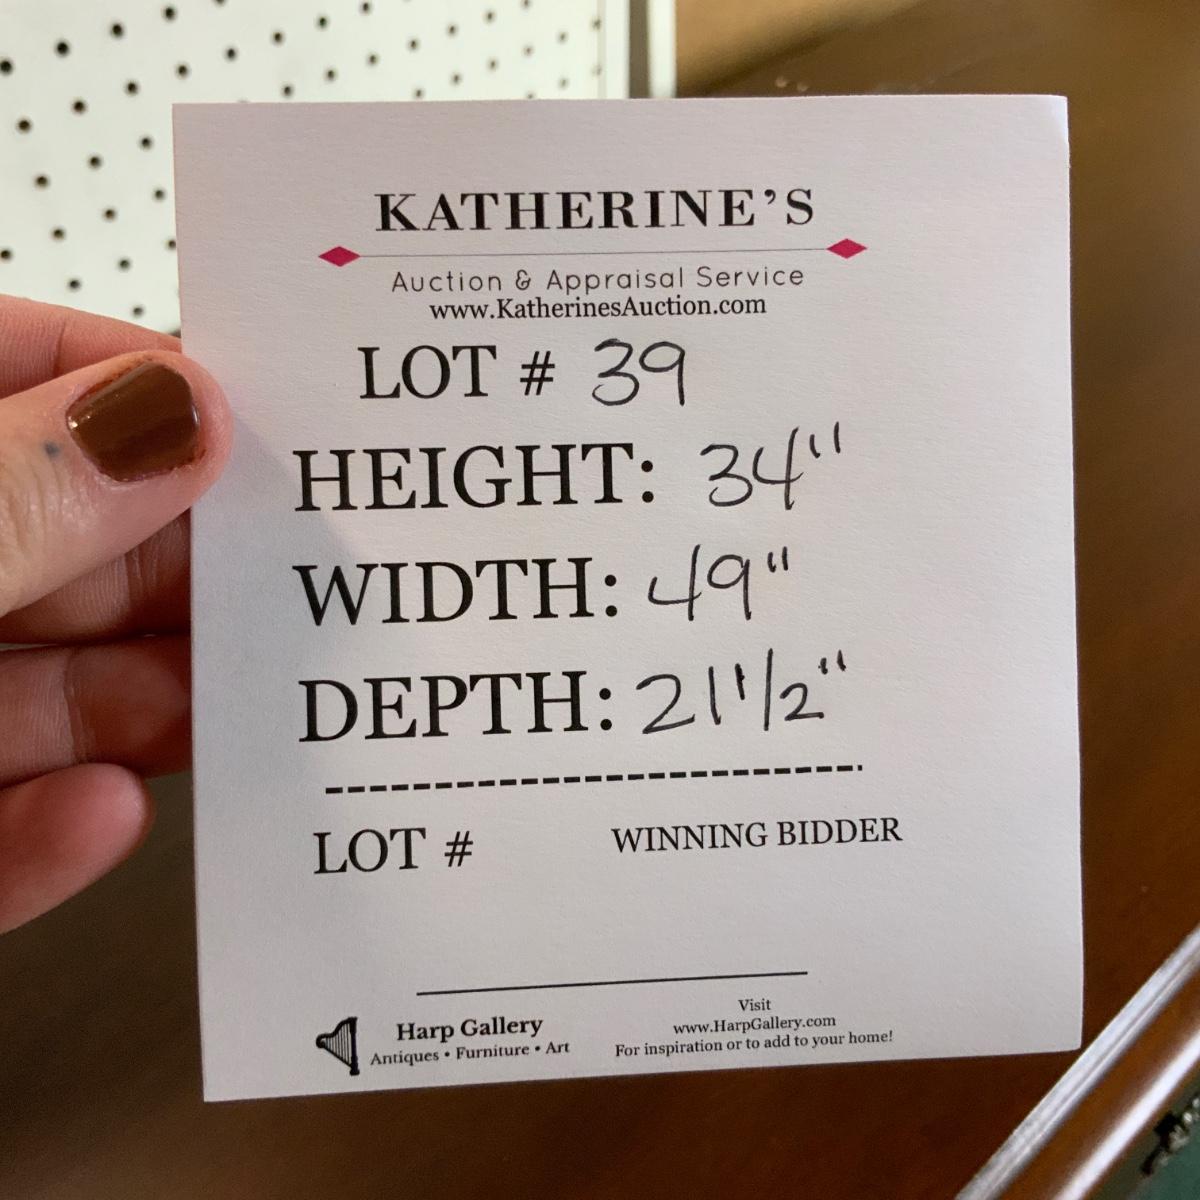 KATHERINE'S
Auction & Appraisal Service
www.KatherinesAuction.com
LOT # 39
HEIGHT: 34"
WIDTH: 49"
DEPTH: 21 1/2"
LOT # WINNING BIDDER
Harp Gallery
Antiques • Furniture • Art
Visit
www.HarpGallery.com
For inspiration or to add to your home!